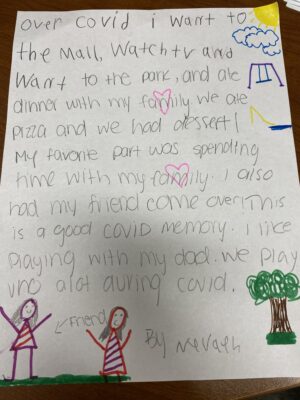 over covid i want to
the mall, watch tv and
want to the park, and ate
dinner with my family. we ate
pizza and we had dessert!
My favorite part was spending
time with my family. i also
had my friend come over! This
is a good covid memory. i like
playing with my dad. we play
uno alot during covid.
Friend
By